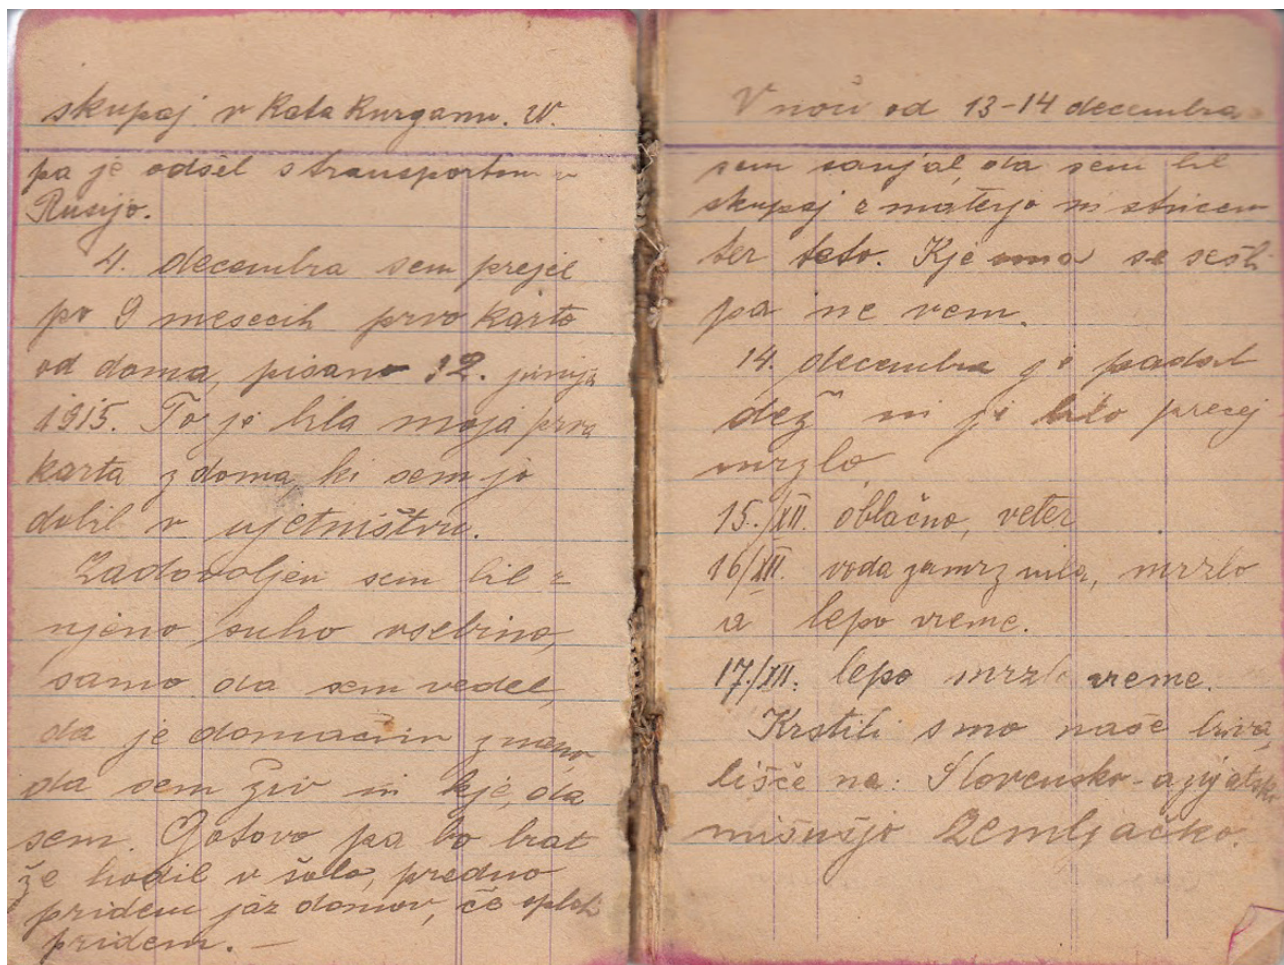 skupaj v Kata Kurganu. W.
pa je odšel s transportom v
Rusijo.
4. decembra sem prejel
po 9 mesecih prvo karto
od doma, pisano 12. junija
1915. To je bila moja prva
karta z doma, ki sem jo
dobil v ujetništvu.
Zadovoljen sem bil z
njeno suho vsebino,
samo da sem vedel,
da je domačim znano,
da sem živ in kje, da
sem. Gotovo pa bo brat
že hodil v šolo, predno
pridem jaz domov, če sploh
pridem. —
V noči od 13-14 decembra
sem sanjal, da sem bil
skupaj z materjo in stricem
ter teto. Kje smo se sešli
pa ne vem.
14. decembra je padal
dež in je bilo precej
mrzlo
15./XII. oblačno, veter
16/XII. voda zamrznila, mrzlo
a lepo vreme.
17./XII. lepo mrzlo vreme.
Krstili smo naše biva,
lišče na: Slovensko-azijatsko
Zemljačko.